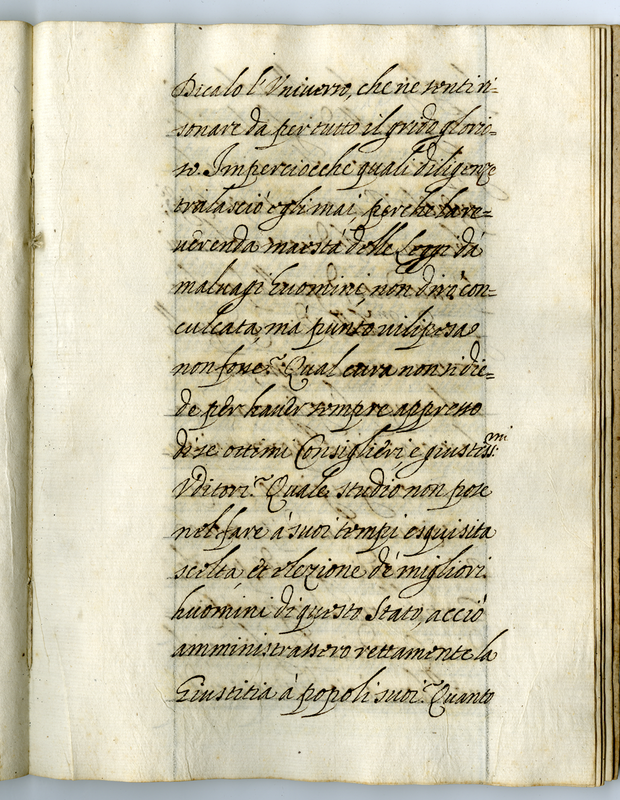 Dicalo l'Vniuerso, che ne sentì ri=
sonare da per tutto il grido glorio=
so. Imperciocche quali diligenze
tralasciò egli mai, perche la re=
uerenda maestà delle Leggi dà
maluagi huomini, non dirò con=
culcata, mà punto uilipesa
non fosse? Qual cura non si die=
de per hauer sempre appresso
di se ottimi Consiglieri, e giustiss:mi
Vditori? Quale studio non pose
nel fare à suoi tempi esquisita
scelta, et elezione de' migliori
huomini di questo Stato, acciò
amministrassero rettamente la
Giustitia à popoli suoi? Quanto